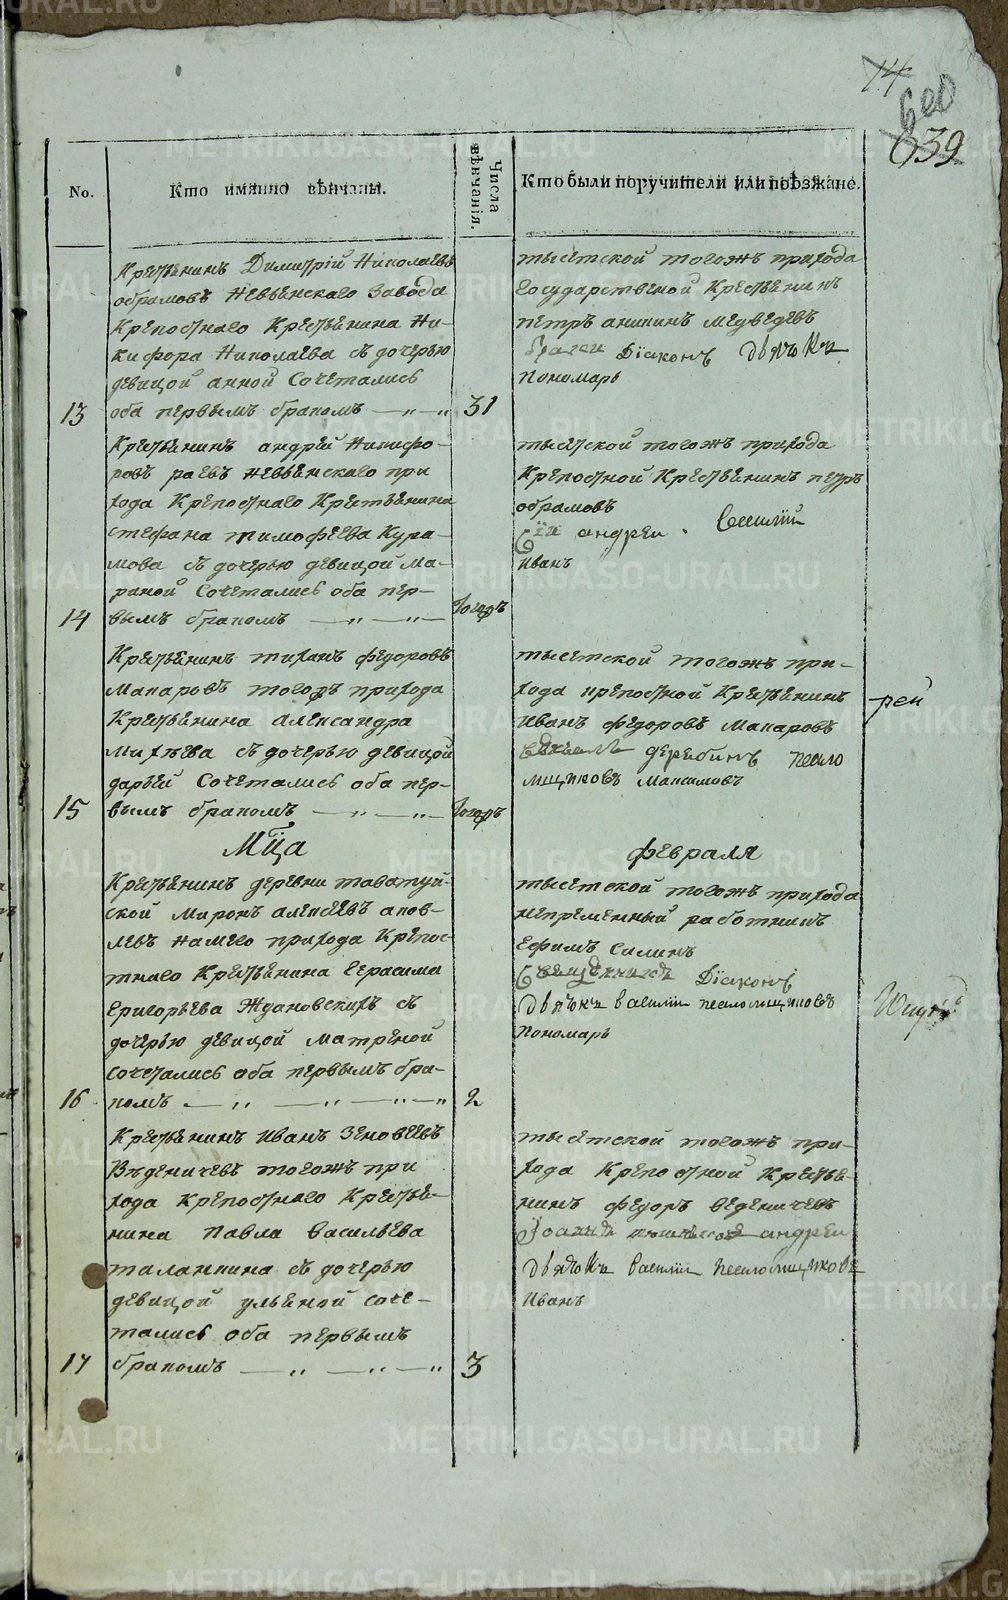 14
600
639
No.
Кто имянно вѣнчаны.
Числа вѣнчанія.
Кто были поручители или поѣзжане.
Крестьянинъ Димитрій Николаевъ
обрамовъ Невьянскаго Завода
Крепостнаго Крестьянина Ни-
кифора Николаева съ дочерью
девицой анной Сочетались
13 оба первымъ бракомъ — „ — „ 31
тысятской тогожъ прихода
Государственой Крестьянинъ
петръ аникинъ медведевъ
Діаконъ дьячокъ
Пономарь
Крестьянинъ андрей Никифо-
ровъ раевъ Невьянскаго при
хода Крепостнаго Крестьянина
стефана тимофеева Кура-
мова съ дочерью девицой Ма-
риной Сочетались оба пер-
14 вымъ бракомъ — „ — „ — Тогожъ
тысятской тогожъ прихода
Крепостной Крестьянинъ петръ
обрамовъ
Сіи андреи . Василіи
Иванъ
Крестьянинъ тиханъ федоровъ
Макаровъ тогожъ прихода
Крестьянина александра
Михѣева съ дочерью девицой
дарьей Сочетались оба пер-
15 вымъ бракомъ — „ — „ — Тогожъ
тысятской тогожъ при-
хода крепостной Крестьянинъ
Иванъ федоровъ Макаровъ
дерябинъ песло
мщиковъ Максимовъ
рей
Мца февраля
Крестьянинъ деревни таватуй-
ской Миронъ алексеевъ апов-
левъ нашего прихода Крепос-
тнаго Крестьянина Герасима
Григорьева Ждановскихъ съ
дочерью девицой Матреной
сочетались оба первымъ бра-
16 комъ — „ — „ — „ — „ 2
тысятской тогожъ прихода
непременный работникъ
Ефимъ Силинъ
Священникъ Діаконъ
Дьячокъ василіи песломщиковъ
Пономарь
Крестьянинъ Иванъ Зеновѣевъ
Вѣденичевъ тогожъ при
хода Крепостнаго Крестья-
нина Павла васильева
таланкина съ дочерью
девицой ульяной соче-
тались оба первымъ
17 бракомъ — „ — „ — „ 3
тысятской тогожъ при-
хода Крепостной Крестья-
нинъ федоръ веденичевъ
Іоаннъ андреи
дьячокъ василіи песломщиковъ
Иванъ
METRIKI.GASO-URAL.RU